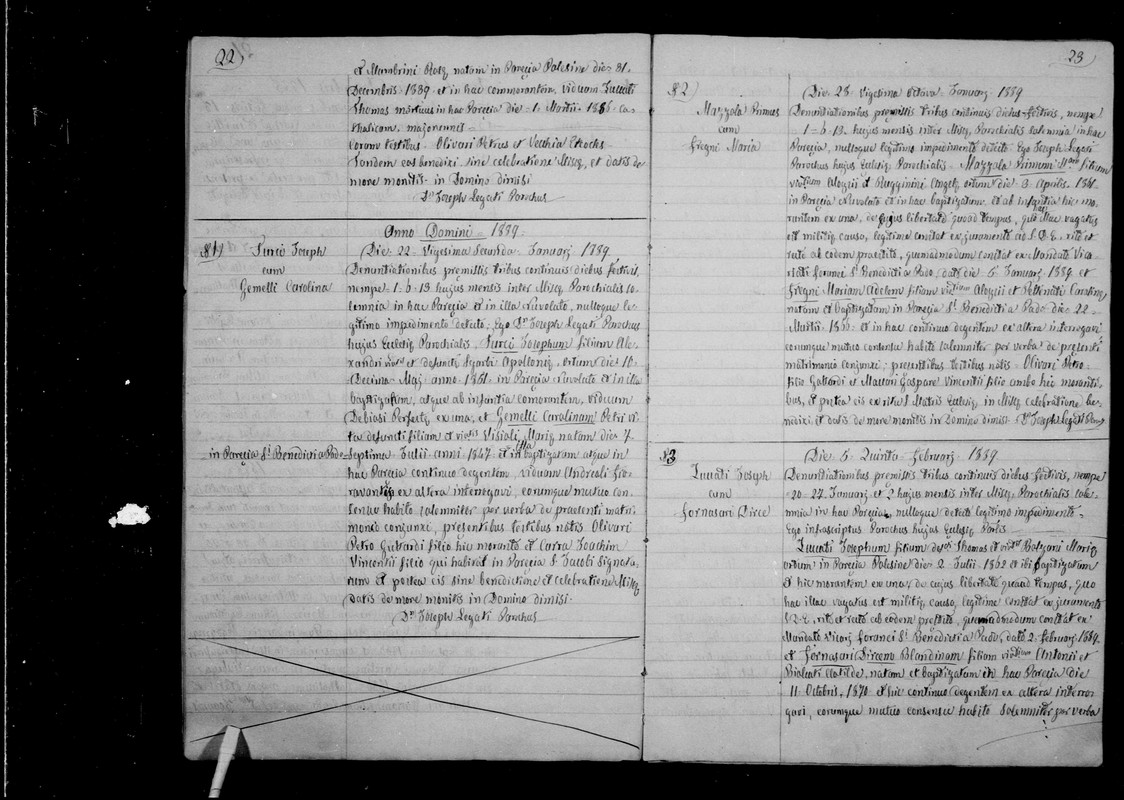 22
et Mambrini Rosæ natam in Parœcia Palesine die 31.
Decembris 1839 et in hac commorantem, viduam Zuccati
Thomas mortuus in hac Parœcia die 1. Martii 1886 ca-
tholicam.
coram testibus Olivari Petrus et Vecchia
Tandem eos benedixi sine celebratione Missæ, et datis de
more monitis in Domino dimisi
Dn Joseph Legati Parochus
Anno Domini - 1889 -
81)
Turci Joseph
cum
Gemelli Carolina
Die 22. Vigesima Secunda Januarj 1889.
Denuntiationibus præmissis tribus continuis diebus festivis,
nempe 1. 6. 13 hujus mensis inter Missæ Parochialis so-
lemnia in hac Parœcia et in illa Nuvolato, nulloque le-
gitimo impedimento detecto; Ego Dn Joseph Legati Parochus
hujus Eclesiæ Parochialis, Turci Josephum filium Ale-
xandri et defunctæ Sgarbi Apolloniæ, ortum die 10.
Decima Maj anno 1861 in Parœcia Nuvolato et in illa
baptizatum, atque ab infantia comorantem, viduum
Debiasi Perfectæ, ex una, et Gemelli Carolinam Petri vi-
ta defuncti filiam et Visiali Mariæ natam die 7.
in Parœcia Sti Benedicti a Pado
Septima Julii anni 1847 et in illa baptizatam atque in
hac Parœcia continuo degentem, viduam Andreoli
ex altera interrogavi, eorumque mutuo con-
sensu habito solemniter per verba de præsenti matri-
monio conjunxi, præsentibus testibus notis Olivari
Petro Galvardi filio hic morante et Carra Joachim
Vincentii filio qui habitat in Parœcia S. Jacobi Signata-
rum et postea eis sine benedictione et celebratione Missæ
datis de more monitis in Domino dimisi
Dn Joseph Legati Parochus
23
82)
Mazzola Primus
cum
Fregni Maria
Die 28. Vigesima Octava Januarj 1889
Denuntiationibus præmissis tribus continuis diebus festivis, nempe
1. 6. 13. hujus mensis inter Missæ Parochialis solemnia in hac
Parœcia, nulloque legitimo impedimento detecto Ego Joseph Legati
Parochus hujus Eclesiæ Parochialis. Mazzola Primum filium
Aloysii et Rugginini Angelæ ortum die 3. Aprilis 1861.
in Parœcia Nuvolato et in hac baptizatum, et ab infantia hic mo-
rantem ex una, de cujus libertate quoad tempus, quo hac illac vagatus
est militiæ causa, legitime constat ex juramento ad S.R.E. rite et
recte ab eodem præstito, quemadmodum constat ex Mandato Vica-
riati foranei Sti Benedicti a Pado, dato die 5 Januarj 1889. et
Fregni Mariam Adelem filiam Aloysii et Carolinæ
natam et baptizatam in Parœcia Sti Benedicti a Pado die 22
Martii 1866 et in hac continuo degentem ex altera interrogavi
eorumque mutuo consensu habito solemniter per verba de præsenti
matrimonio conjunxi; præsentibus testibus notis Olivari Petro
filio Galvardi et Gaspare Vincentii filio ambo hic morantis-
bus, et postea eis ex ritu S. Matris Eclesiæ, in Missæ celebratione be-
nedixi et datis de more monitis in Domino dimisi. Dn Joseph Legati Paro
83
Zuccati Joseph
cum
Fornasari Dirce
Die 5. Quinta Februarj 1889.
Denuntiationibus præmissis tribus continuis diebus festivis, nempe
20. 27. Januarj et 2 hujus mensis inter Missæ Parochialis sole-
mnia in hac Parœcia, nulloque detecto legitimo impedimento.
Ego infrascriptus Parochus hujus Eclesiæ Parlis
Zuccati Josephum filium Thomas et Bolzani Mariæ
ortum in Parœcia Palesine die 2. Julii 1862 et ibi baptizatum
et hic morantem ex una, de cujus libertate quoad tempus, quo
hac illac vagatus est militiæ causa, legitime constat ex juramento
S.R.E. rite et recte ab eodem præstito, quemadmodum constat ex
Mandato Vicarj foranei Sti Benedicti a Pado, dato 2. Februarj 1889.
et Fornasari Dircem Blandinam filiam Antonii et
Bialcati Clotilde, natam et baptizatam in hac Parœcia die
11. Octobris, 1870 et sic continuo degentem ex altera interro-
gavi, eorumque mutuo consensu habito solemniter per verba